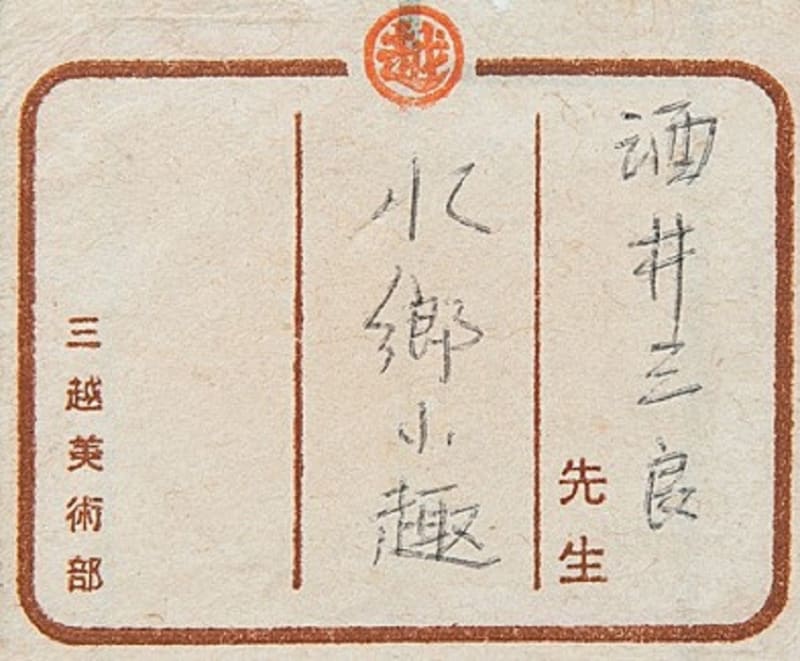 越
酒井三良
先生
水郷小趣
三越美術部